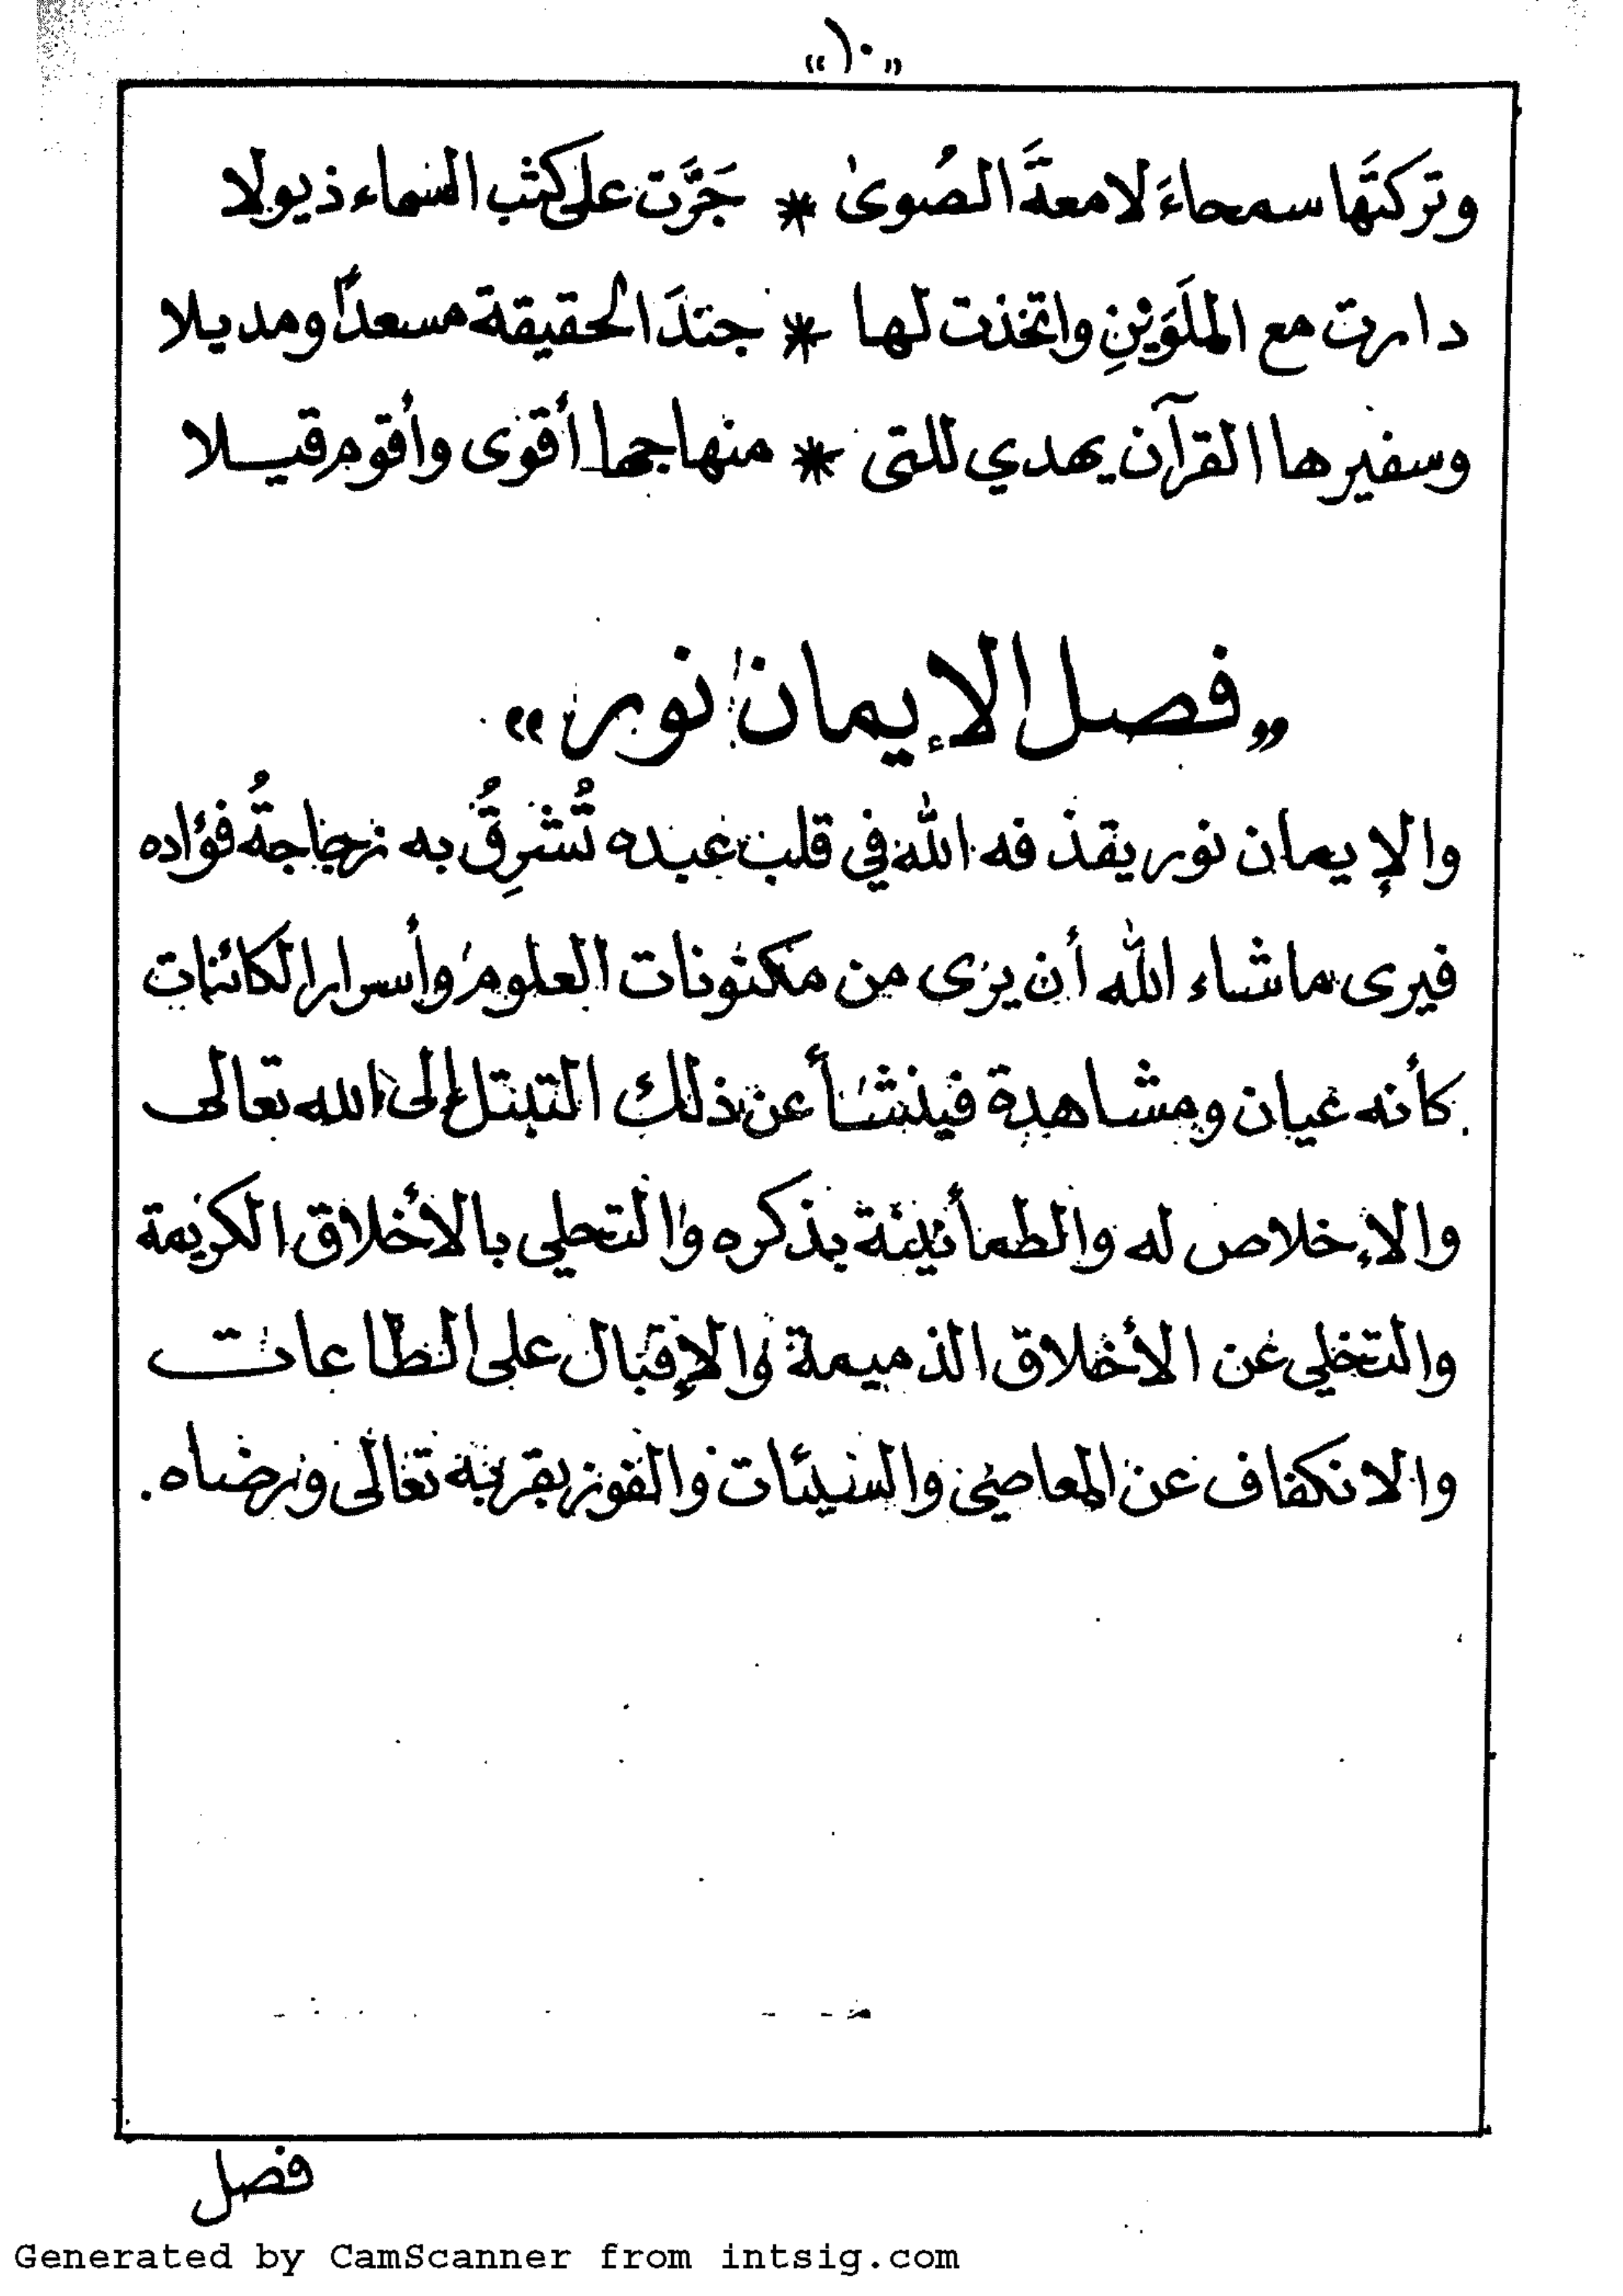 «١٠»
وتركتَها سمحاءَ لامعةَ الصُوىٰ * جَرَّت على كثب السماء ذيولا
دارت مع الملَوَيْنِ واتخذت لها * جندَ الحقيقة مسعدًا ومديلا
وسفيرها القرآن يهدي للتى * منهاجها أقوى وأقوم قيلا
«فصل الإيمان نور»
والإيمان نور يقذفه الله في قلب عبده تُشرِقُ به زجاجةُ فؤاده
فيرى ما شاء الله أن يرى من مكنونات العلوم وأسرار الكائنات
كأنه عيان ومشاهدة فينشأ عن ذلك التبتل إلى الله تعالى
والإخلاص له والطمأنينة بذكره والتحلي بالأخلاق الكريمة
والتخلي عن الأخلاق الذميمة والإقبال على الطاعات
والانكفاف عن المعاصي والسيئات والفوز بقربه تعالى ورضاه.
فصل
Generated by CamScanner from intsig.com